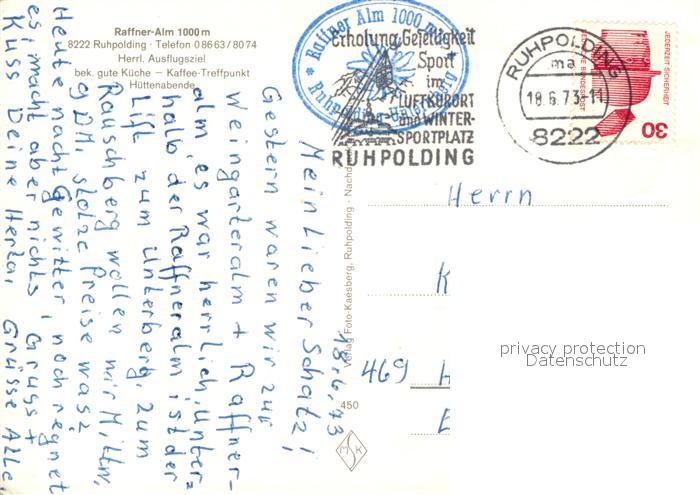 Raffner-Alm 1000 m
8222 Ruhpolding · Telefon 0 86 63 / 80 74
Herrl. Ausflugsziel
bek. gute Küche — Kaffee-Treffpunkt
Hüttenabende
* Raffner Alm 1000 m *
Ruhpolding-Unterberg
Erholung Geselligkeit
Sport
im
LUFTKURORT
und WINTER-
SPORTPLATZ
RUHPOLDING
RUHPOLDING
ma
18.6.73-11
8222
JEDERZEIT SICHERHEIT
DEUTSCHE BUNDESPOST
30
18.6.73
Mein lieber Schatz!
Gestern waren wir zur
Weingarteralm + Raffner-
alm, es war herrlich, unter=
halb der Raffneralm ist der
Lift zum Unterberg. Zum
Rauschberg wollen wir Mittw,
9 DM, stolze Preise was?
Heute nacht Gewitter, noch regnet
es, macht aber nichts. Gruss +
Kuss Deine Herta. Grüsse Alle.
Verlag Foto-Kaesberg, Ruhpolding · Nachd
450
MSK
Herrn
K
469 H
privacy protection
Datenschutz